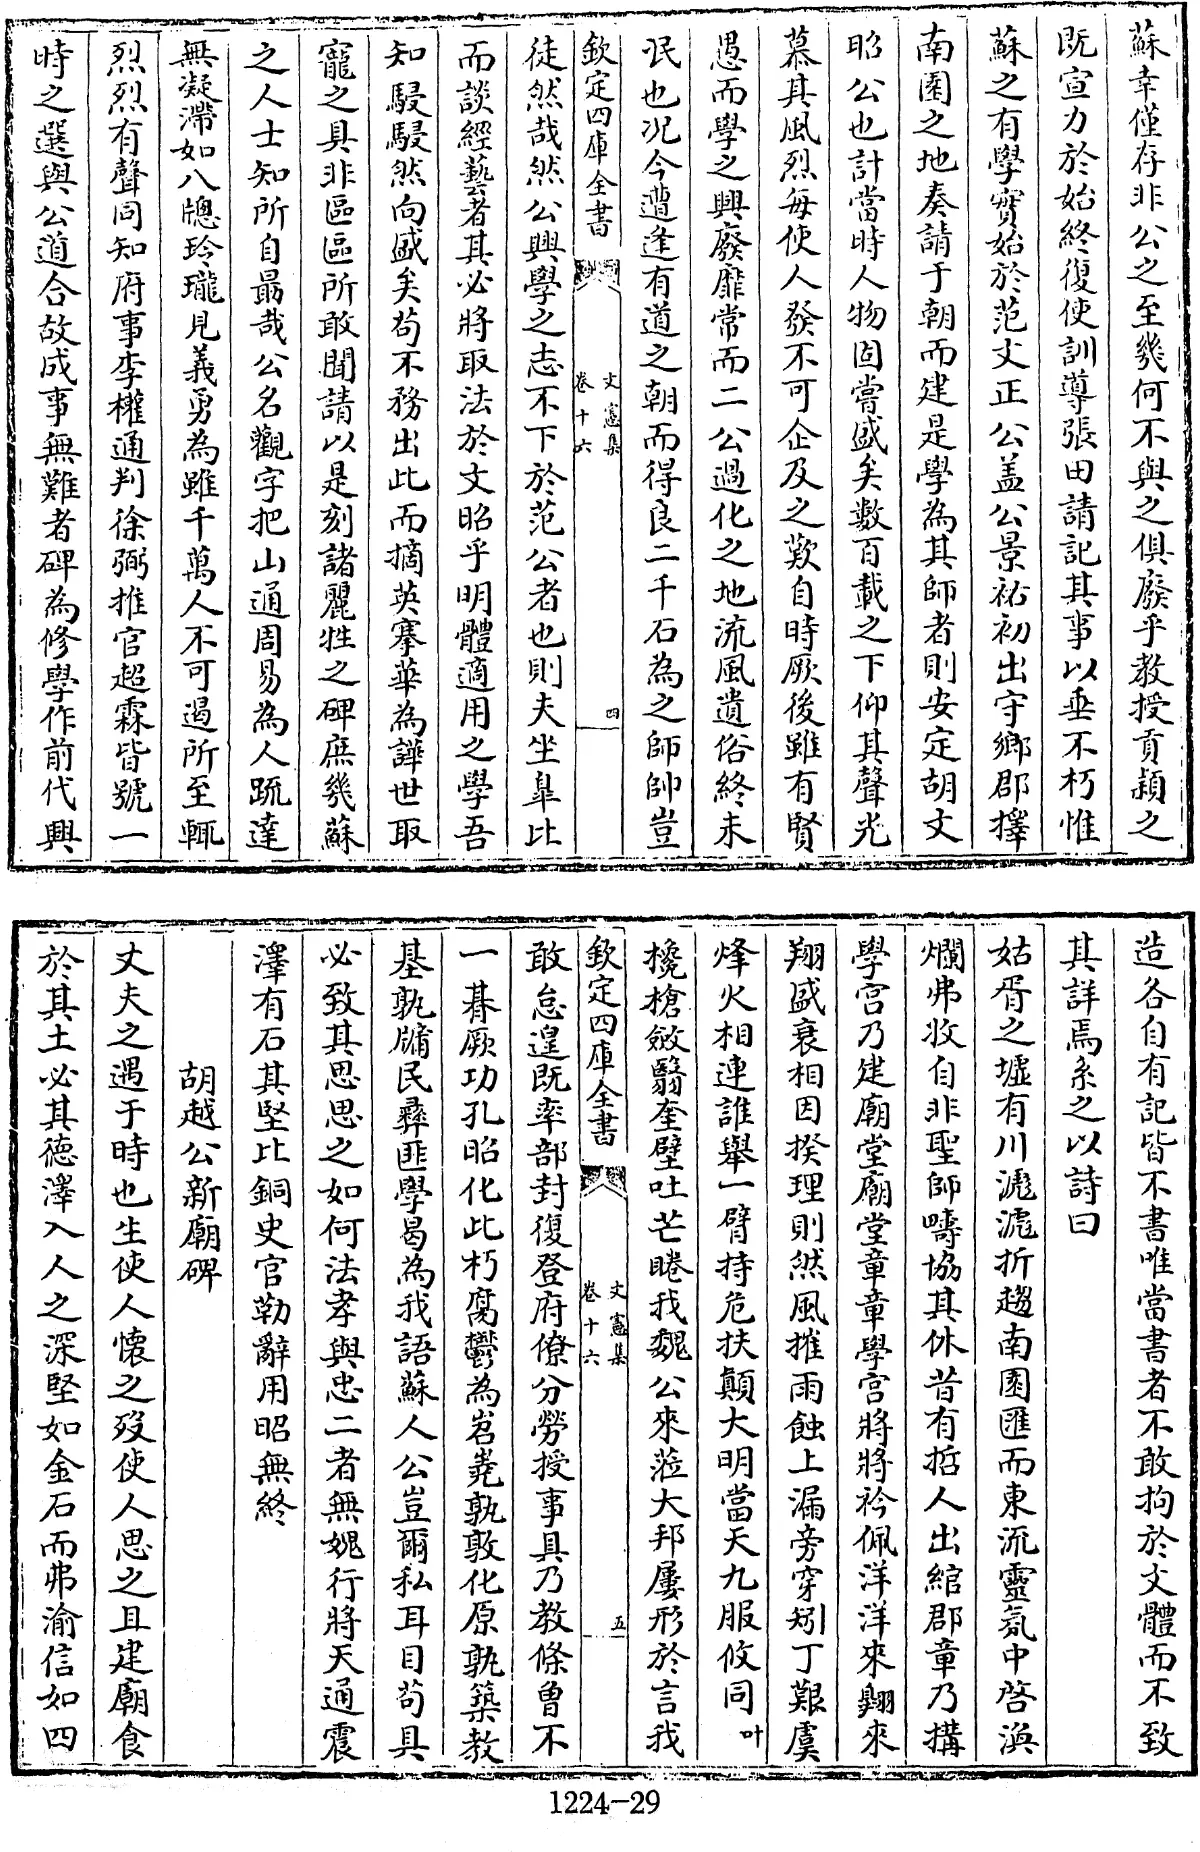 蘇幸僅存非公之至幾何不與之俱廢乎教授貢潁之
既宣力於始終復使訓導張田請記其事以垂不朽惟
蘇之有學實始於范文正公盖公景祐初出守鄉郡擇
南園之地奏請于朝而建是學為其師者則安定胡文
昭公也計當時人物固嘗盛矣數百載之下仰其聲光
慕其風烈每使人發不可企及之歎自時厥後雖有賢
愚而學之興廢靡常而二公過化之地流風遺俗終未
泯也況今遭逢有道之朝而得良二千石為之師帥豈
欽定四庫全書
文憲集
卷十六
四
徒然哉然公興學之志不下於范公者也則夫坐臯比
而談經藝者其必將取法於文昭乎明體適用之學吾
知駸駸然向盛矣苟不務出此而摘英搴華為譁世取
寵之具非區區所敢聞請以是刻諸麗牲之碑庶幾蘇
之人士知所自勗哉公名觀字把山通周易為人疏達
無凝滯如八牕玲瓏見義勇為雖千萬人不可遏所至輒
烈烈有聲同知府事李權通判徐弼推官超霖皆號一
時之選與公道合故成事無難者碑為修學作前代興
造各自有記皆不書唯當書者不敢拘於文體而不致
其詳焉系之以詩曰
姑胥之墟有川滮滮折趨南園匯而東流靈氛中啓渙
爛弗收自非聖師疇協其休昔有哲人出綰郡章乃搆
學宮乃建廟堂廟堂章章學宮將將衿佩洋洋來翺來
翔盛衰相因揆理則然風摧雨蝕上漏旁穿矧丁艱虞
烽火相連誰舉一臂持危扶顛大明當天九服攸同叶
欃槍斂翳奎璧吐芒睠我魏公來涖大邦屢形於言我
欽定四庫全書
文憲集
卷十六
五
敢怠遑既率部封復登府僚分勞授事具乃教條曾不
一朞厥功孔昭化此朽腐鬱為岧嶤孰敦化原孰築教
基孰牖民彞匪學曷為我語蘇人公豈爾私耳目苟具
必致其思思之如何法孝與忠二者無媿行將天通震
澤有石其堅比銅史官勒辭用昭無終
胡越公新廟碑
丈夫之遇于時也生使人懷之歿使人思之且建廟食
於其土必其德澤入人之深堅如金石而弗渝信如四
1224-29